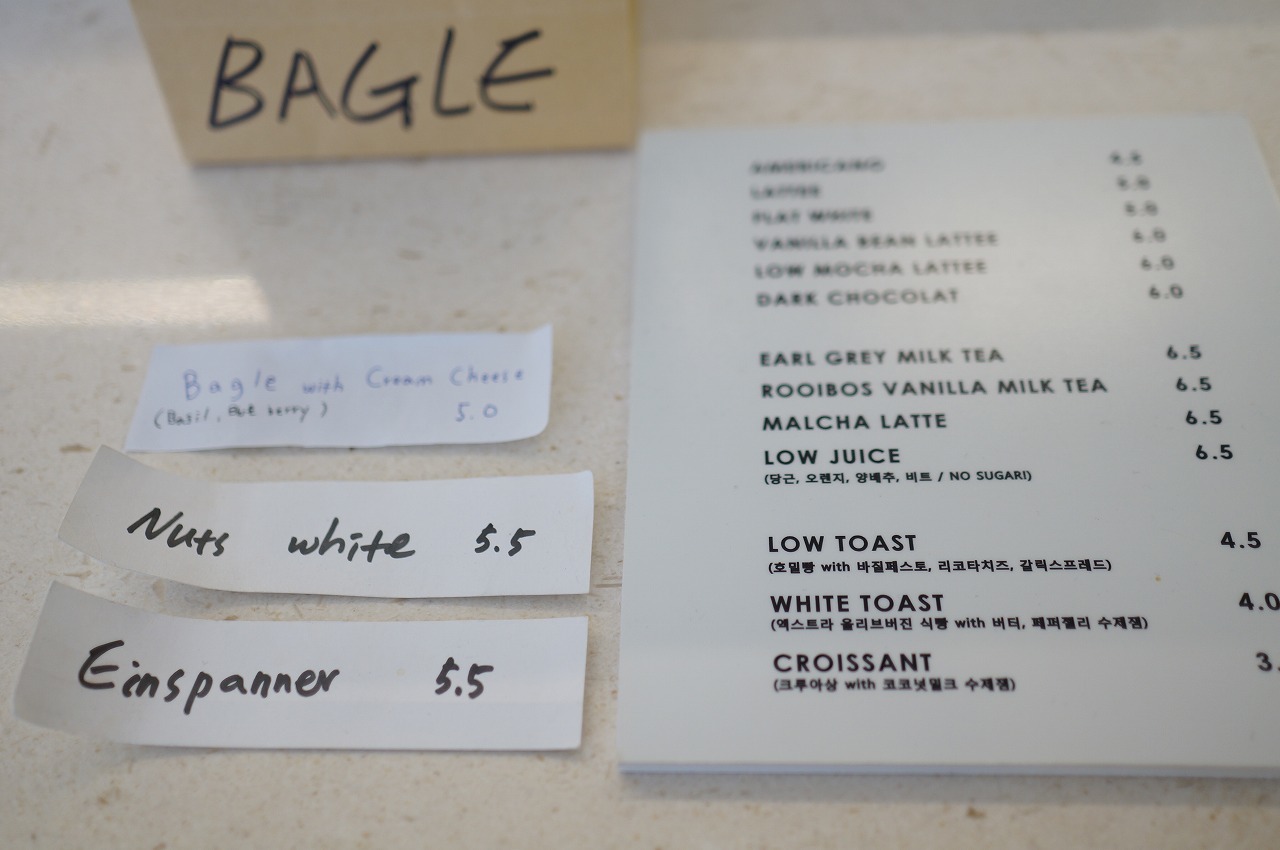 BAGLE
Bagle with Cream Cheese
(Basil, berry) 5.0
Nuts white 5.5
Einspanner 5.5
AMERICANO
LATTEE 5.0
FLAT WHITE 5.0
VANILLA BEAN LATTEE 6.0
LOW MOCHA LATTEE 6.0
DARK CHOCOLAT 6.0
EARL GREY MILK TEA 6.5
ROOIBOS VANILLA MILK TEA 6.5
MALCHA LATTE 6.5
LOW JUICE 6.5
(당근, 오렌지, 양배추, 비트 / NO SUGAR!)
LOW TOAST 4.5
(호밀빵 with 바질페스토, 리코타치즈, 갈릭스프레드)
WHITE TOAST 4.0
(엑스트라 올리브버진 식빵 with 버터, 페퍼젤리 수제잼)
CROISSANT 3.
(크루아상 with 코코넛밀크 수제잼)